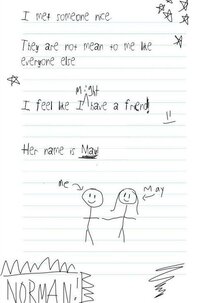 I met someone nice
They are not mean to me like
everyone else
I feel like I might have a friend!
Her name is May!
me
May
NORMAN!